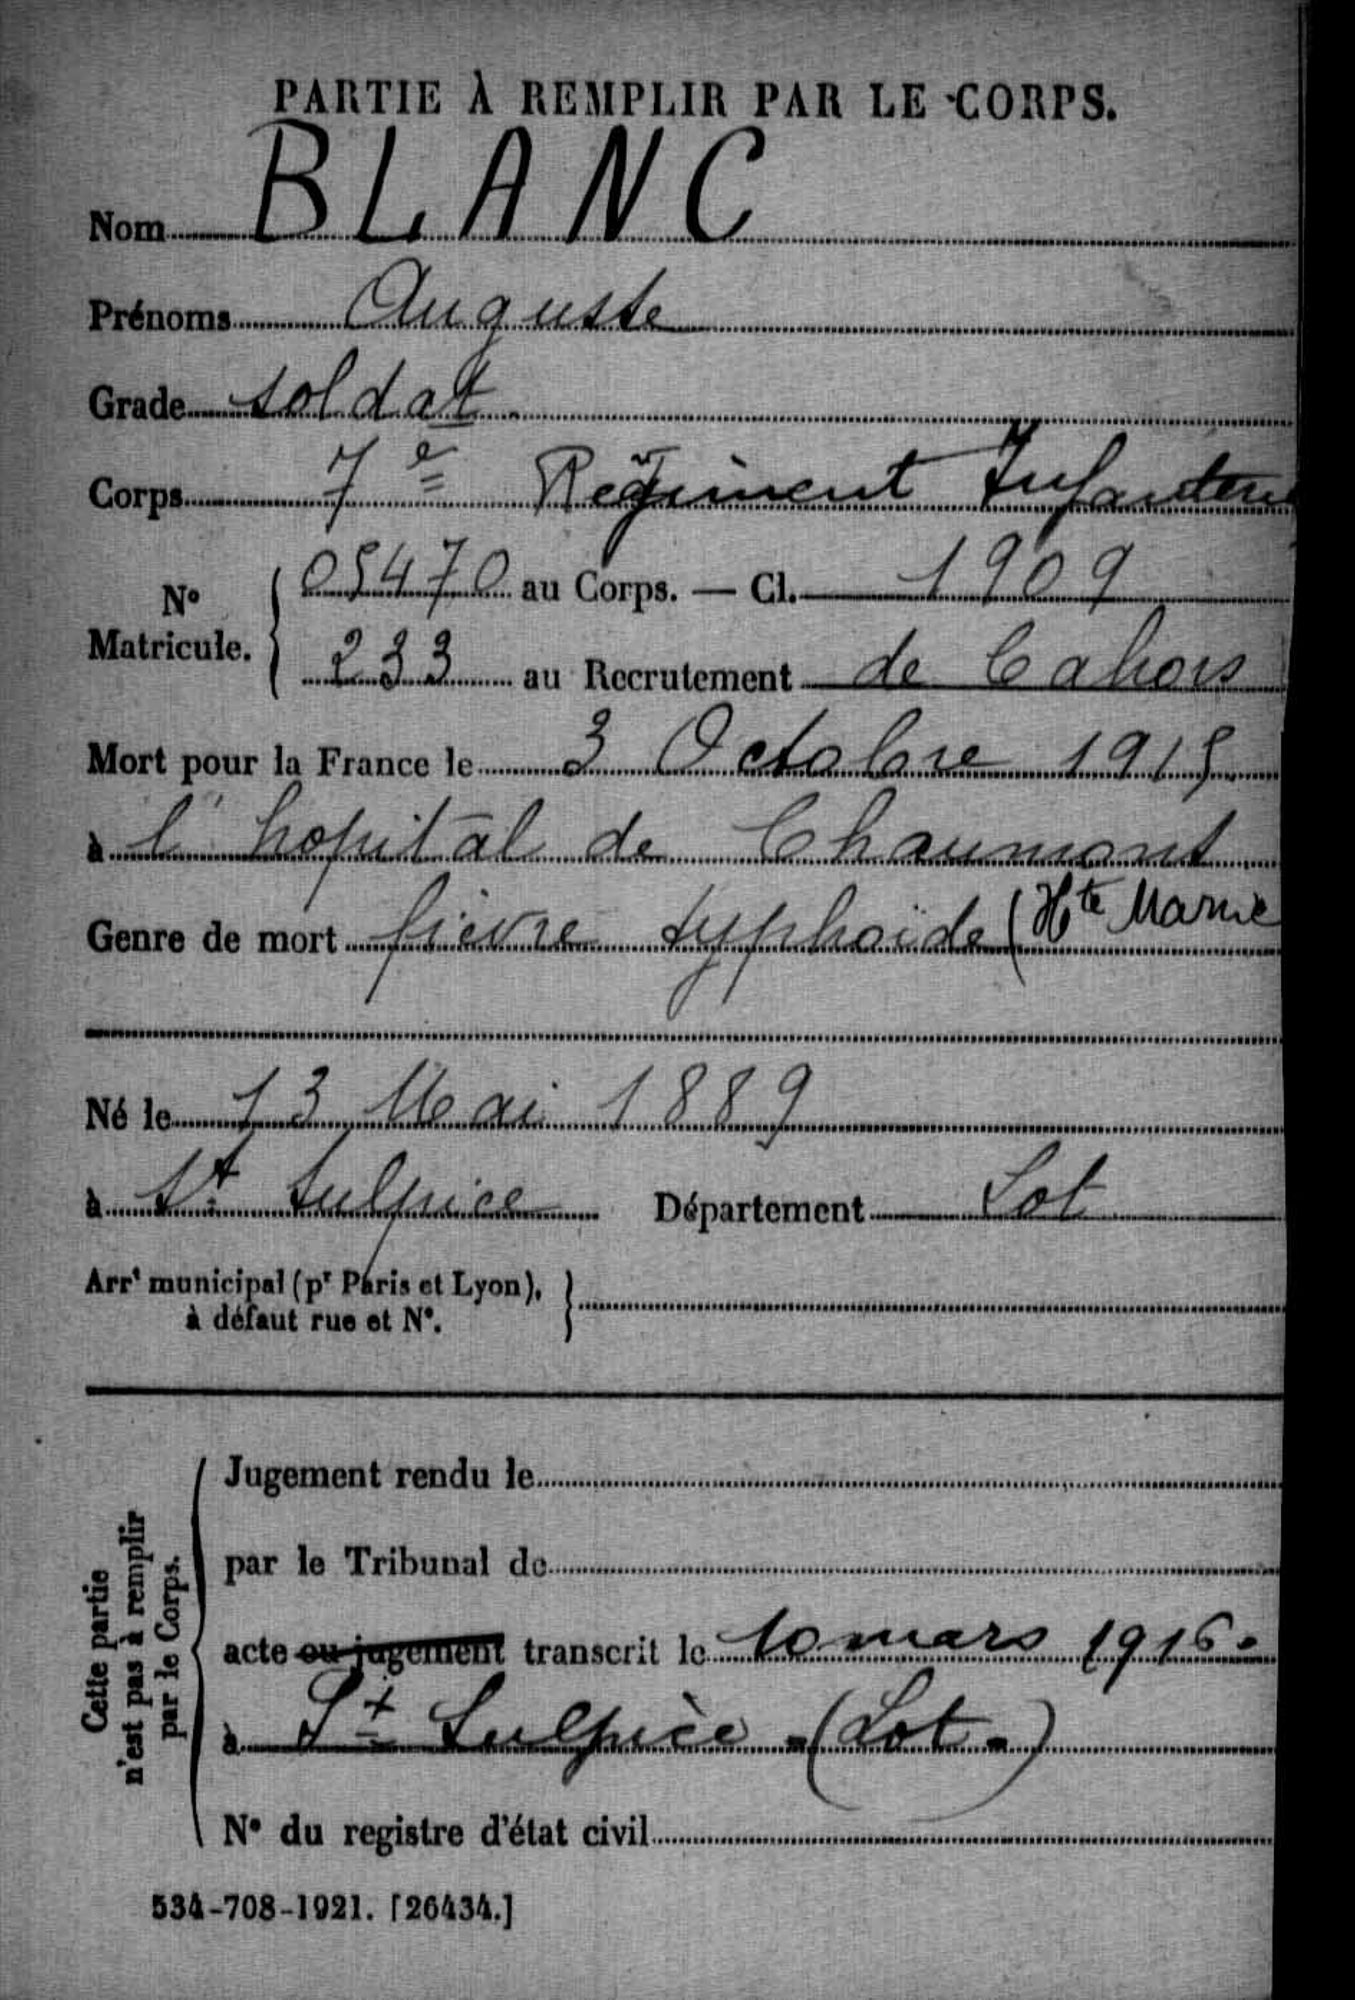 PARTIE À REMPLIR PAR LE CORPS.
Nom BLANC
Prénoms Auguste
Grade soldat
Corps 7e Régiment Infanterie
N° Matricule. 05470 au Corps. — Cl. 1909
233 au Recrutement de Cahors
Mort pour la France le 3 Octobre 1915
à l'hopital de Chaumont
Genre de mort fièvre typhoïde (Hte Marne
Né le 13 Mai 1889
à St Sulpice Département Lot
Arrt municipal (pr Paris et Lyon),
à défaut rue et N°.
Cette partie
n'est pas à remplir
par le Corps.
Jugement rendu le
par le Tribunal de
acte ou jugement transcrit le 10 mars 1916.
à St Sulpice - (Lot.)
N° du registre d'état civil
534-708-1921. [26434.]